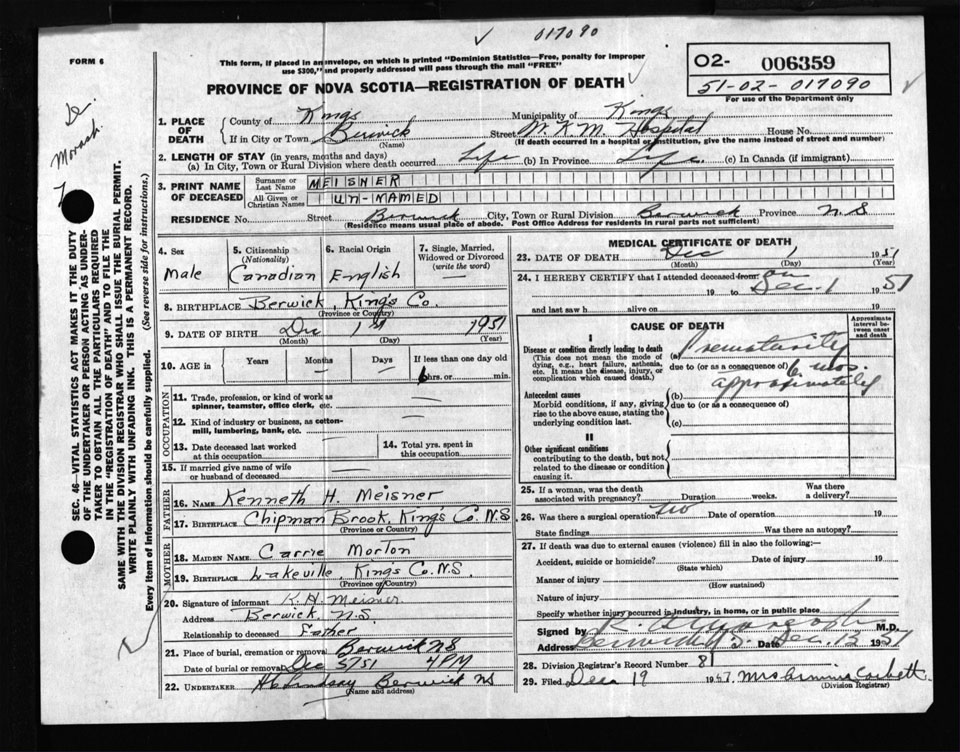 017090
FORM 6
This form, if placed in an envelope, on which is printed "Dominion Statistics—Free, penalty for improper
use $300," and properly addressed will pass through the mail "FREE"
PROVINCE OF NOVA SCOTIA—REGISTRATION OF DEATH
02- 006359
51-02-017090
For use of the Department only
1. PLACE OF DEATH
County of Kings Municipality of Kings
If in City or Town Berwick Street W.K.M. Hospital House No.
(Name) (If death occurred in a hospital or institution, give the name instead of street and number)
2. LENGTH OF STAY (in years, months and days)
(a) In City, Town or Rural Division where death occurred Life (b) In Province Life. (c) In Canada (if immigrant)
3. PRINT NAME OF DECEASED
Surname or Last Name MEISNER
All Given or Christian Names UN-NAMED
RESIDENCE No. Street Berwick City, Town or Rural Division Berwick Province N.S
(Residence means usual place of abode. Post Office Address for residents in rural parts not sufficient)
4. Sex Male
5. Citizenship (Nationality) Canadian
6. Racial Origin English
7. Single, Married, Widowed or Divorced (write the word) —
8. BIRTHPLACE Berwick, King's Co.
(Province or Country)
9. DATE OF BIRTH Dec 1st 1951
(Month) (Day) (Year)
10. AGE in Years Months Days If less than one day old
6 hrs. or min.
OCCUPATION
11. Trade, profession, or kind of work as spinner, teamster, office clerk, etc. —
12. Kind of industry or business, as cotton-mill, lumbering, bank, etc. —
13. Date deceased last worked at this occupation
14. Total yrs. spent in this occupation
15. If married give name of wife or husband of deceased —
FATHER
16. NAME Kenneth H. Meisner
17. BIRTHPLACE Chipman Brook, King's Co. N.S
(Province or Country)
MOTHER
18. MAIDEN NAME Carrie Morton
19. BIRTHPLACE Lakeville, Kings Co. N.S.
(Province or Country)
20. Signature of informant K. H. Meisner
Address Berwick, N.S.
Relationship to deceased Father
21. Place of burial, cremation or removal Berwick NS
Date of burial or removal Dec 5/51 4 PM
22. UNDERTAKER Lindsay Berwick NS
(Name and address)
MEDICAL CERTIFICATE OF DEATH
23. DATE OF DEATH Dec 1 1951
(Month) (Day) (Year)
24. I HEREBY CERTIFY that I attended deceased from: on
19 to Dec. 1 1951
and last saw h alive on 19
CAUSE OF DEATH
Approximate interval between onset and death
I
Disease or condition directly leading to death
(This does not mean the mode of dying, e.g., heart failure, asthenia, etc. It means the disease, injury, or complication which caused death.)
(a) Prematurity
due to (or as a consequence of) 6 mos.
approximately
Antecedent causes
Morbid conditions, if any, giving rise to the above cause, stating the underlying condition last.
(b)
due to (or as a consequence of)
(c)
II
Other significant conditions
contributing to the death, but not related to the disease or condition causing it.
25. If a woman, was the death associated with pregnancy? Duration weeks. Was there a delivery?
26. Was there a surgical operation? no Date of operation 19
State findings Was there an autopsy?
27. If death was due to external causes (violence) fill in also the following:—
Accident, suicide or homicide? Date of injury 19
(State which)
Manner of injury
(How sustained)
Nature of injury
Specify whether injury occurred in industry, in home, or in public place
Signed by M.D.
Address Berwick N.S. Date Dec. 13 1951
28. Division Registrar's Record Number 81
29. Filed Dec 19 Mrs Corbett
(Division Registrar)
SEC. 46—VITAL STATISTICS ACT MAKES IT THE DUTY
OF THE UNDERTAKER OR PERSON ACTING AS UNDER-
TAKER TO OBTAIN ALL THE PARTICULARS REQUIRED
IN THE "REGISTRATION OF DEATH" AND TO FILE THE
SAME WITH THE DIVISION REGISTRAR WHO SHALL ISSUE THE BURIAL PERMIT.
WRITE PLAINLY WITH UNFADING INK. THIS IS A PERMANENT RECORD.
Every item of Information should be carefully supplied. (See reverse side for instructions.)